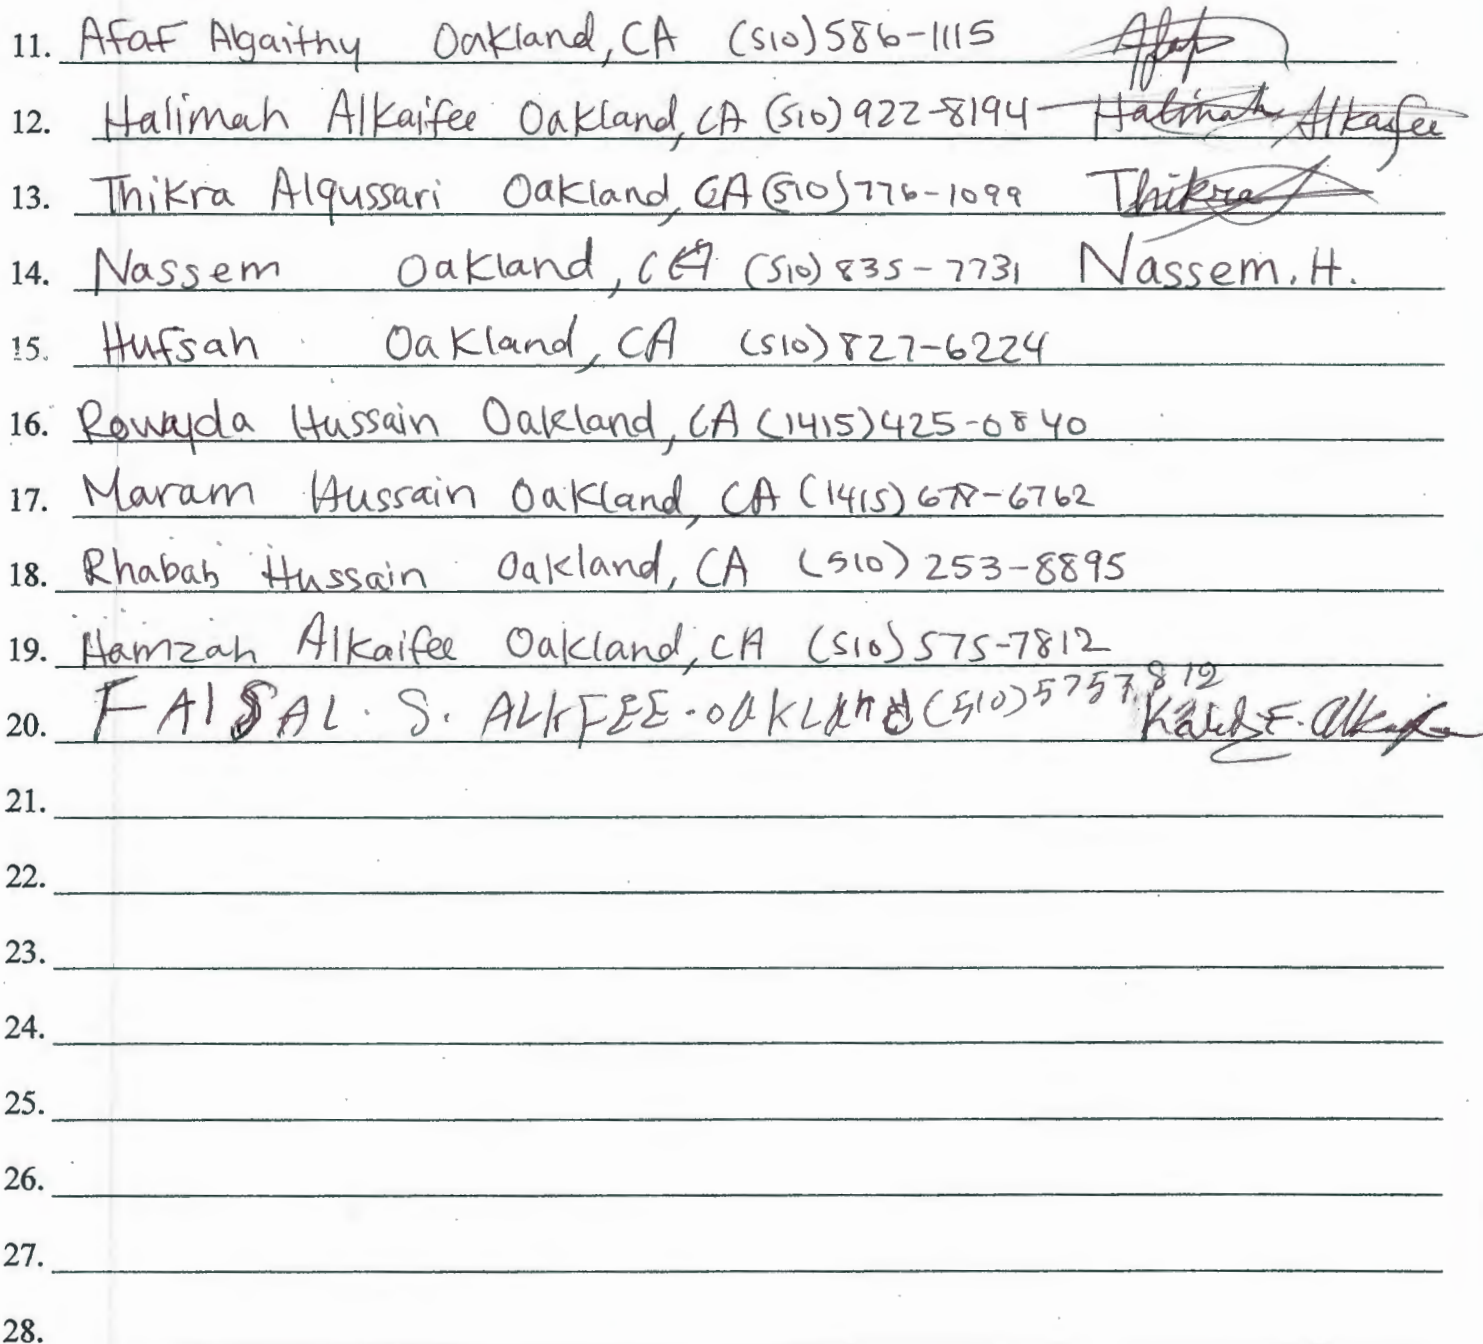 11. Afaf Algaithy Oakland, CA (510) 586-1115 Afaf
12. Halimah Alkaifee Oakland, CA (510) 922-8194 Halimah Alkaifee
13. Thikra Alqussari Oakland, CA (510) 776-1099 Thikra
14. Nassem Oakland, CA (510) 835-7731 Nassem. H.
15. Hufsah Oakland, CA (510) 827-6224
16. Rowayda Hussain Oakland, CA (1415) 425-0840
17. Maram Hussain Oakland, CA (1415) 678-6762
18. Rhabab Hussain Oakland, CA (510) 253-8895
19. Hamzah Alkaifee Oakland, CA (510) 575-7812
20. FAISAL. S. ALKFEE. OAKLAnd (510) 5757812
21.
22.
23.
24.
25.
26.
27.
28.